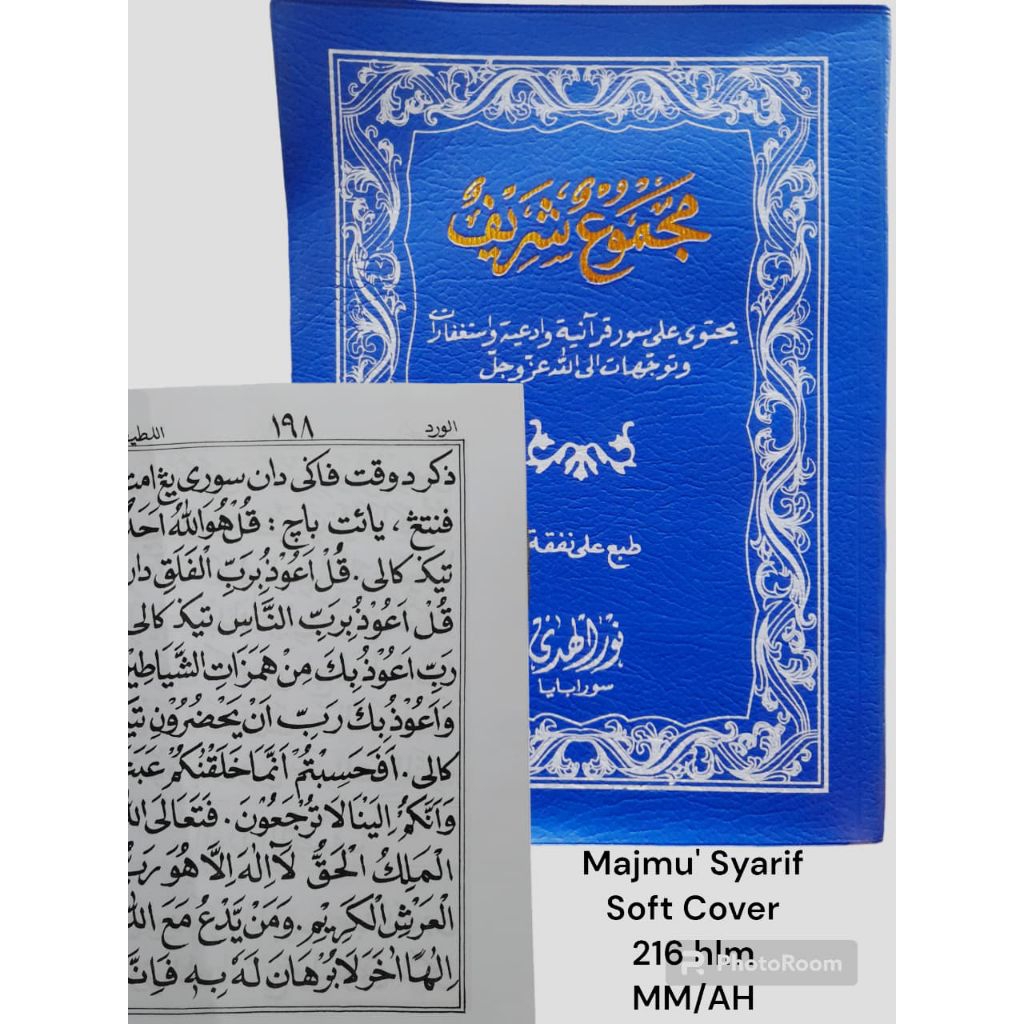 مَجْمُوْعٌ شَرِيْفٌ
يحتوى على سور قرآنية وادعية واستغفارات
وتوجّهات الى الله عزّ وجلّ
طبع على نفقة
نور الهدى
سورابايا
الورد ١٩٨
ذكر دوقت فاكى دان سورى يڠ
فنتڠ ، يائت باچ : قُلْ هُوَ اللهُ اَحَدٌ
تيݢ كالى . قُلْ اَعُوْذُ بِرَبِّ الْفَلَقِ دان
قُلْ اَعُوْذُ بِرَبِّ النَّاسِ تيݢ كالى
رَبِّ اَعُوْذُ بِكَ مِنْ هَمَزَاتِ الشَّيَاطِيْنِ
وَاَعُوْذُ بِكَ رَبِّ اَنْ يَحْضُرُوْنِ
كالى . اَفَحَسِبْتُمْ اَنَّمَا خَلَقْنٰكُمْ
وَاَنَّكُمْ اِلَيْنَا لَا تُرْجَعُوْنَ . فَتَعَالَى
الْمَلِكُ الْحَقُّ لَآ اِلٰهَ اِلَّا هُوَ رَبُّ
الْعَرْشِ الْكَرِيْمِ . وَمَنْ يَدْعُ مَعَ
اِلٰهًا اٰخَرَ لَا بُرْهَانَ لَهٗ بِهٖ
Majmu' Syarif
Soft Cover
216 hlm
PhotoRoom
MM/AH